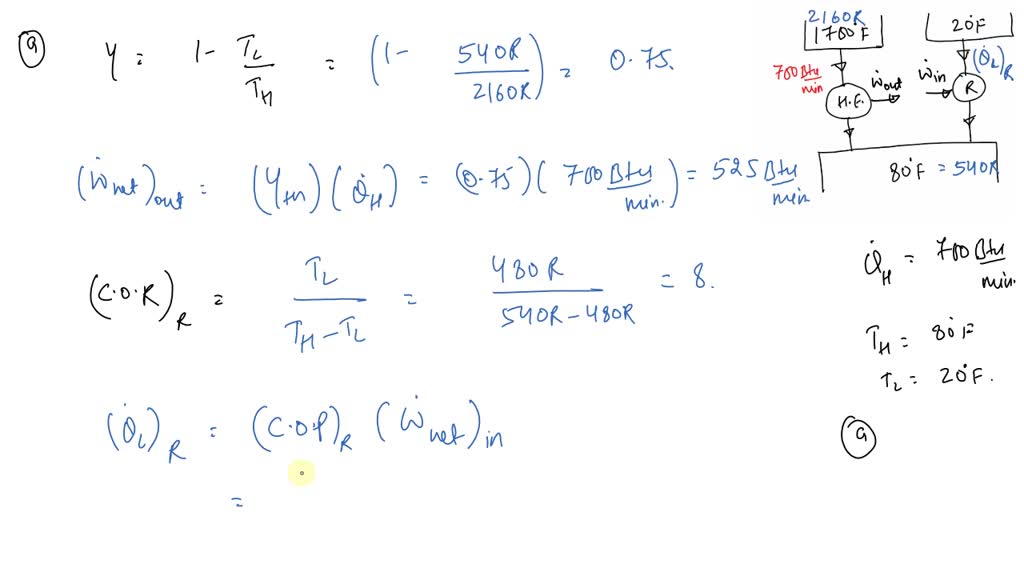 (a) η = 1 - T_L / T_H = (1 - 540R / 2160R) = 0.75.
(Ẇnet)out = (ηth)(Q̇H) = (0.75)(700 Btu/min.) = 525 Btu/min
(C.O.R)R = T_L / (T_H - T_L) = 480R / (540R - 480R) = 8.
(Q̇L)R = (C.O.P)R (Ẇnet)in
=
2160R
1700°F
20°F
700 Btu/min
(Q̇L)R
Ẇout
Ẇin
H.E.
R
80°F = 540R
Q̇H = 700 Btu/min.
TH = 80°F
TL = 20°F.
(a)